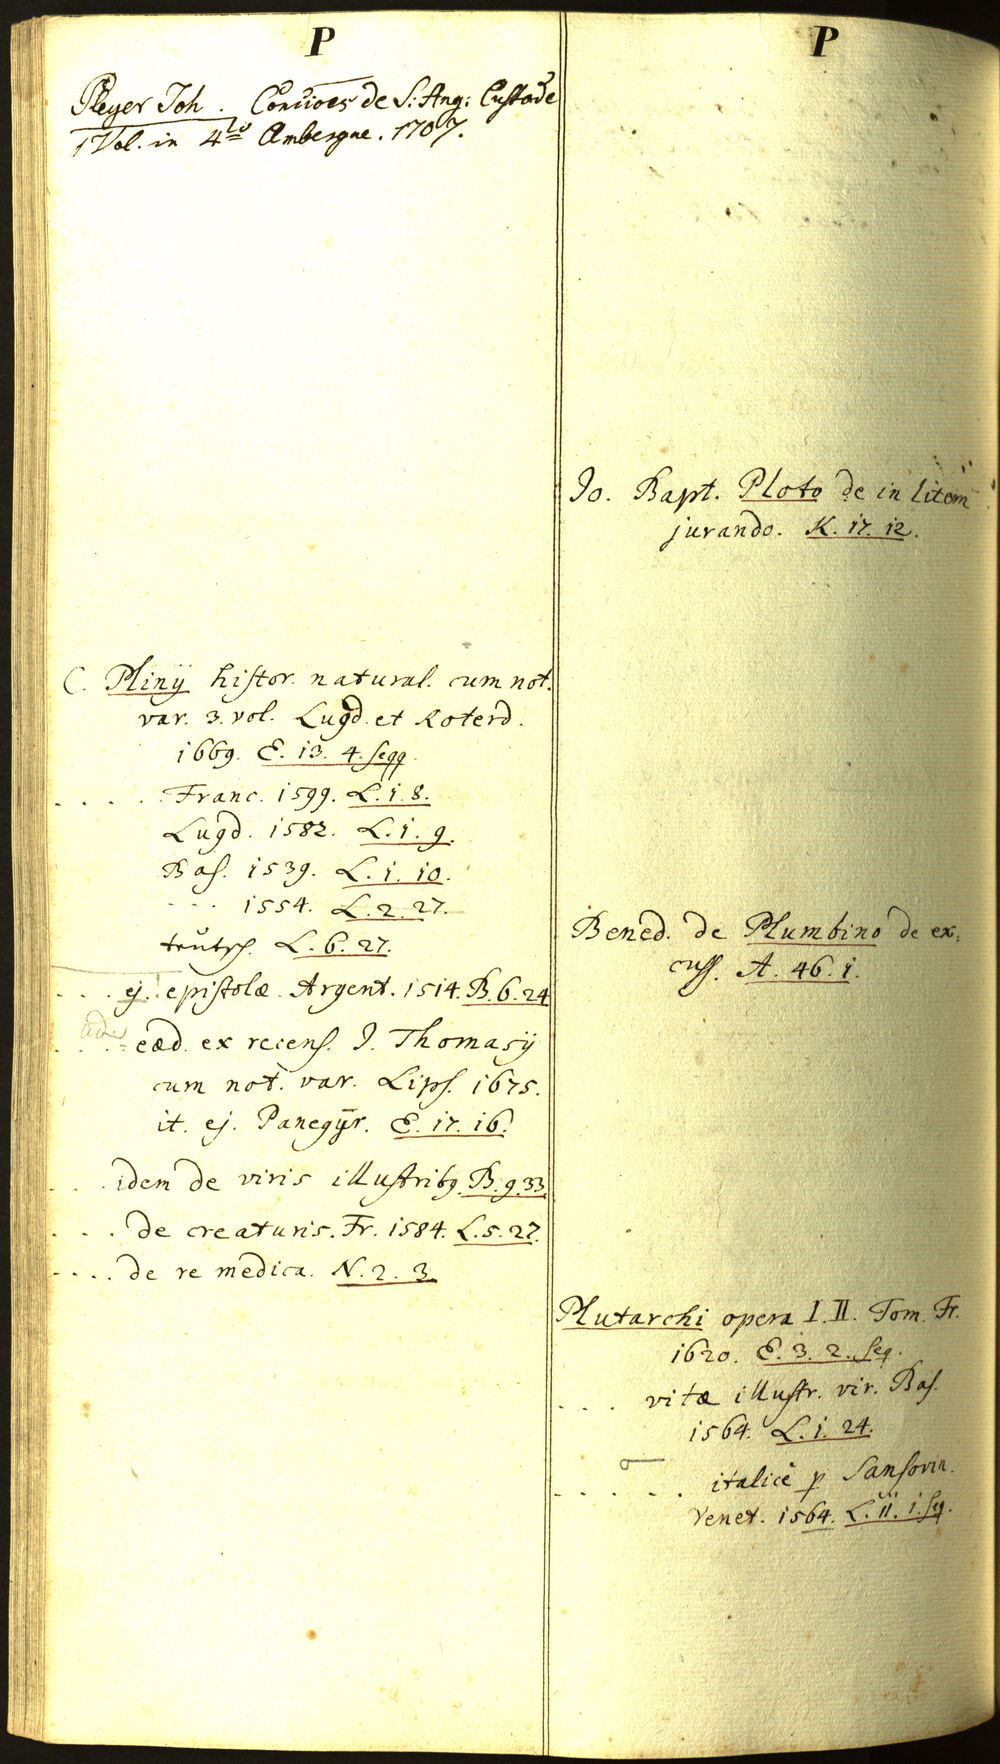 P
Pleyer Joh. Concioes de S: Ang: Custode
1 Vol. in 4to Ambergae. 1707.
C. Plinij histor. natural. cum not.
var. 3. vol. Lugd. et Roterd.
1669. E. 13. 4. seqq.
. . . . . Franc. 1599. L. 1. 8.
Lugd. 1582. L. 1. 9.
Bas. 1539. L. 1. 10.
. . . 1554. L. 2. 27.
teutsch. L. 6. 27.
. . . . ej. epistolæ Argent. 1514. B. 6. 24
. . . . eæd. ex recens. J. Thomasij
cum not. var. Lips. 1675.
it. ej. Panegÿr. E. 17. 16.
. . . idem de viris illustribq. B. 9. 33.
. . . de creaturis. Fr. 1584. L. 5. 27.
. . . . de re medica. N. 2. 3.
P
Jo. Bapt. Ploto de in litem
jurando. K. 17. 12.
Bened. de Plumbino de ex:
cuss. A. 46. 1.
Plutarchi opera I. II. Tom. Fr.
1620. E. 3. 2. seq.
. . . vitæ illustr. vir. Bas.
1564. L. 1. 24.
. . . . . italicè p Sansovin.
Venet. 1564. L. 11. 1. seq.